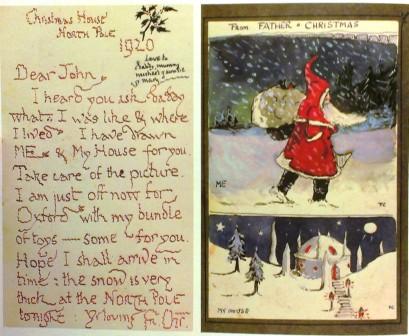 Christmas House
NORTH POLE
1920
Love to
daddy, mummy
michael & auntie
mary
Dear John
I heard you ask daddy
what I was like & where
I lived. I have drawn
ME & My House for you.
Take care of the picture.
I am just off now for
Oxford with my bundle
of toys — some for you.
Hope I shall arrive in
time: the snow is very
thick at the NORTH POLE
tonight: Yr loving Fr. Chr.
From FATHER CHRISTMAS
ME
MY HOUSE